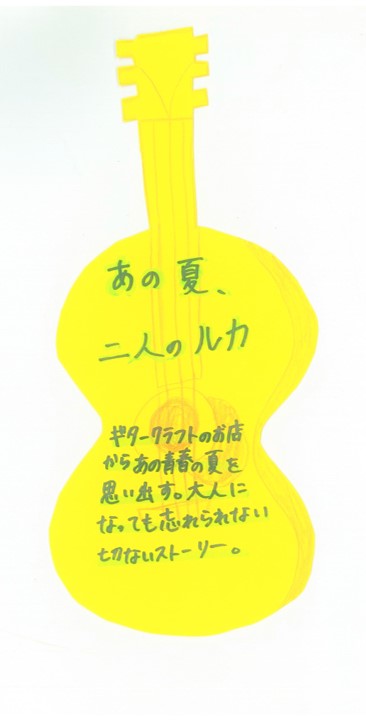 あの夏、
二人のルカ
ギタークラフトのお店
からあの青春の夏を
思い出す。大人に
なっても忘れられない
切ないストーリー。